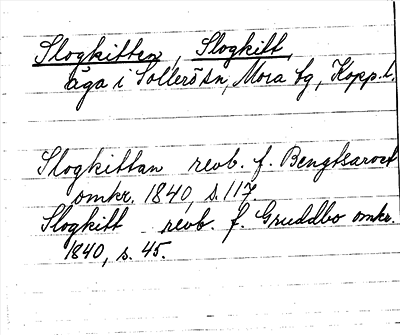 Slogkitten, Slogkitt,
äga i Sollerö sn, Mora tg, Kopp. l.
Slogkittan revb. f. Bengtsarvet
omkr. 1840, s. 117.
Slogkitt revb. f. Gruddbo omkr.
1840, s. 45.